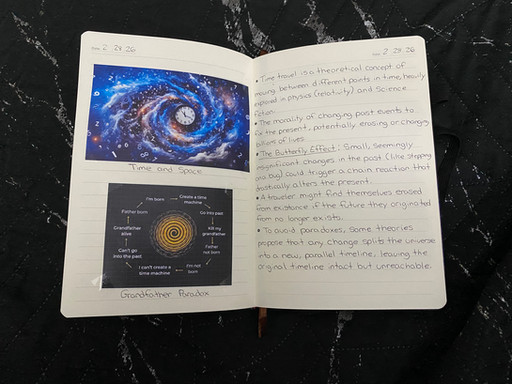 Date 2 28 26
Time and Space
I'm born
Create a time
machine
Go into past
Kill my
grandfather
Father
not born
I'm not
born
I can't create a
time machine
Can't go
into the past
Grandfather
alive
Father born
Grandfather Paradox
Date 2 28 26
• Time travel is a theoretical concept of
moving between different points in time, heavily
explored in physics (relativity) and science
fiction.
• The morality of changing past events to
fix the present, potentially erasing or changing
billions of lives.
• The Butterfly Effect: Small, seemingly
insignificant changes in the past (like stepping
on a bug) could trigger a chain reaction that
drastically alters the present.
• A traveler might find themselves erased
from existence if the future they originated
from no longer exists.
• To avoid paradoxes, some theories
propose that any change splits the universe
into a new, parallel timeline, leaving the
original timeline intact but unreachable.